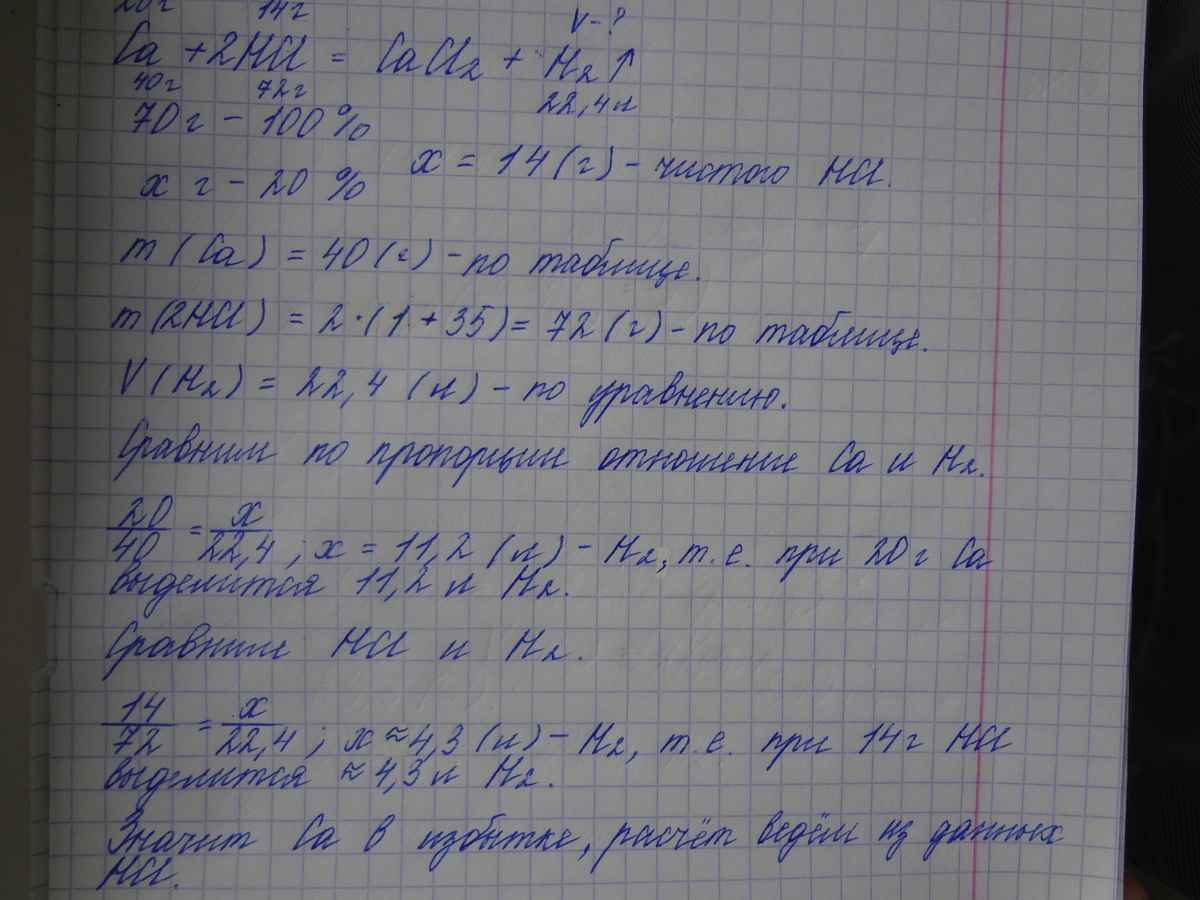 20г 14г
V-?
Ca + 2HCl = CaCl₂ + H₂↑
40г 72г 22,4л
70г - 100%
x г - 20% x = 14(г) - чистого HCl.
m(Ca) = 40(г) - по таблице.
m(2HCl) = 2·(1+35) = 72(г) - по таблице.
V(H₂) = 22,4 (л) - по уравнению.
Сравним по пропорции отношение Ca и H₂.
20/40 = x/22,4; x = 11,2 (л) - H₂, т.е. при 20г Ca
выделится 11,2 л H₂.
Сравние HCl и H₂.
14/72 = x/22,4; x ≈ 4,3 (л) - H₂, т.е. при 14г HCl
выделится ≈ 4,3л H₂.
Значит Ca в избытке, расчёт ведём из данных
HCl.